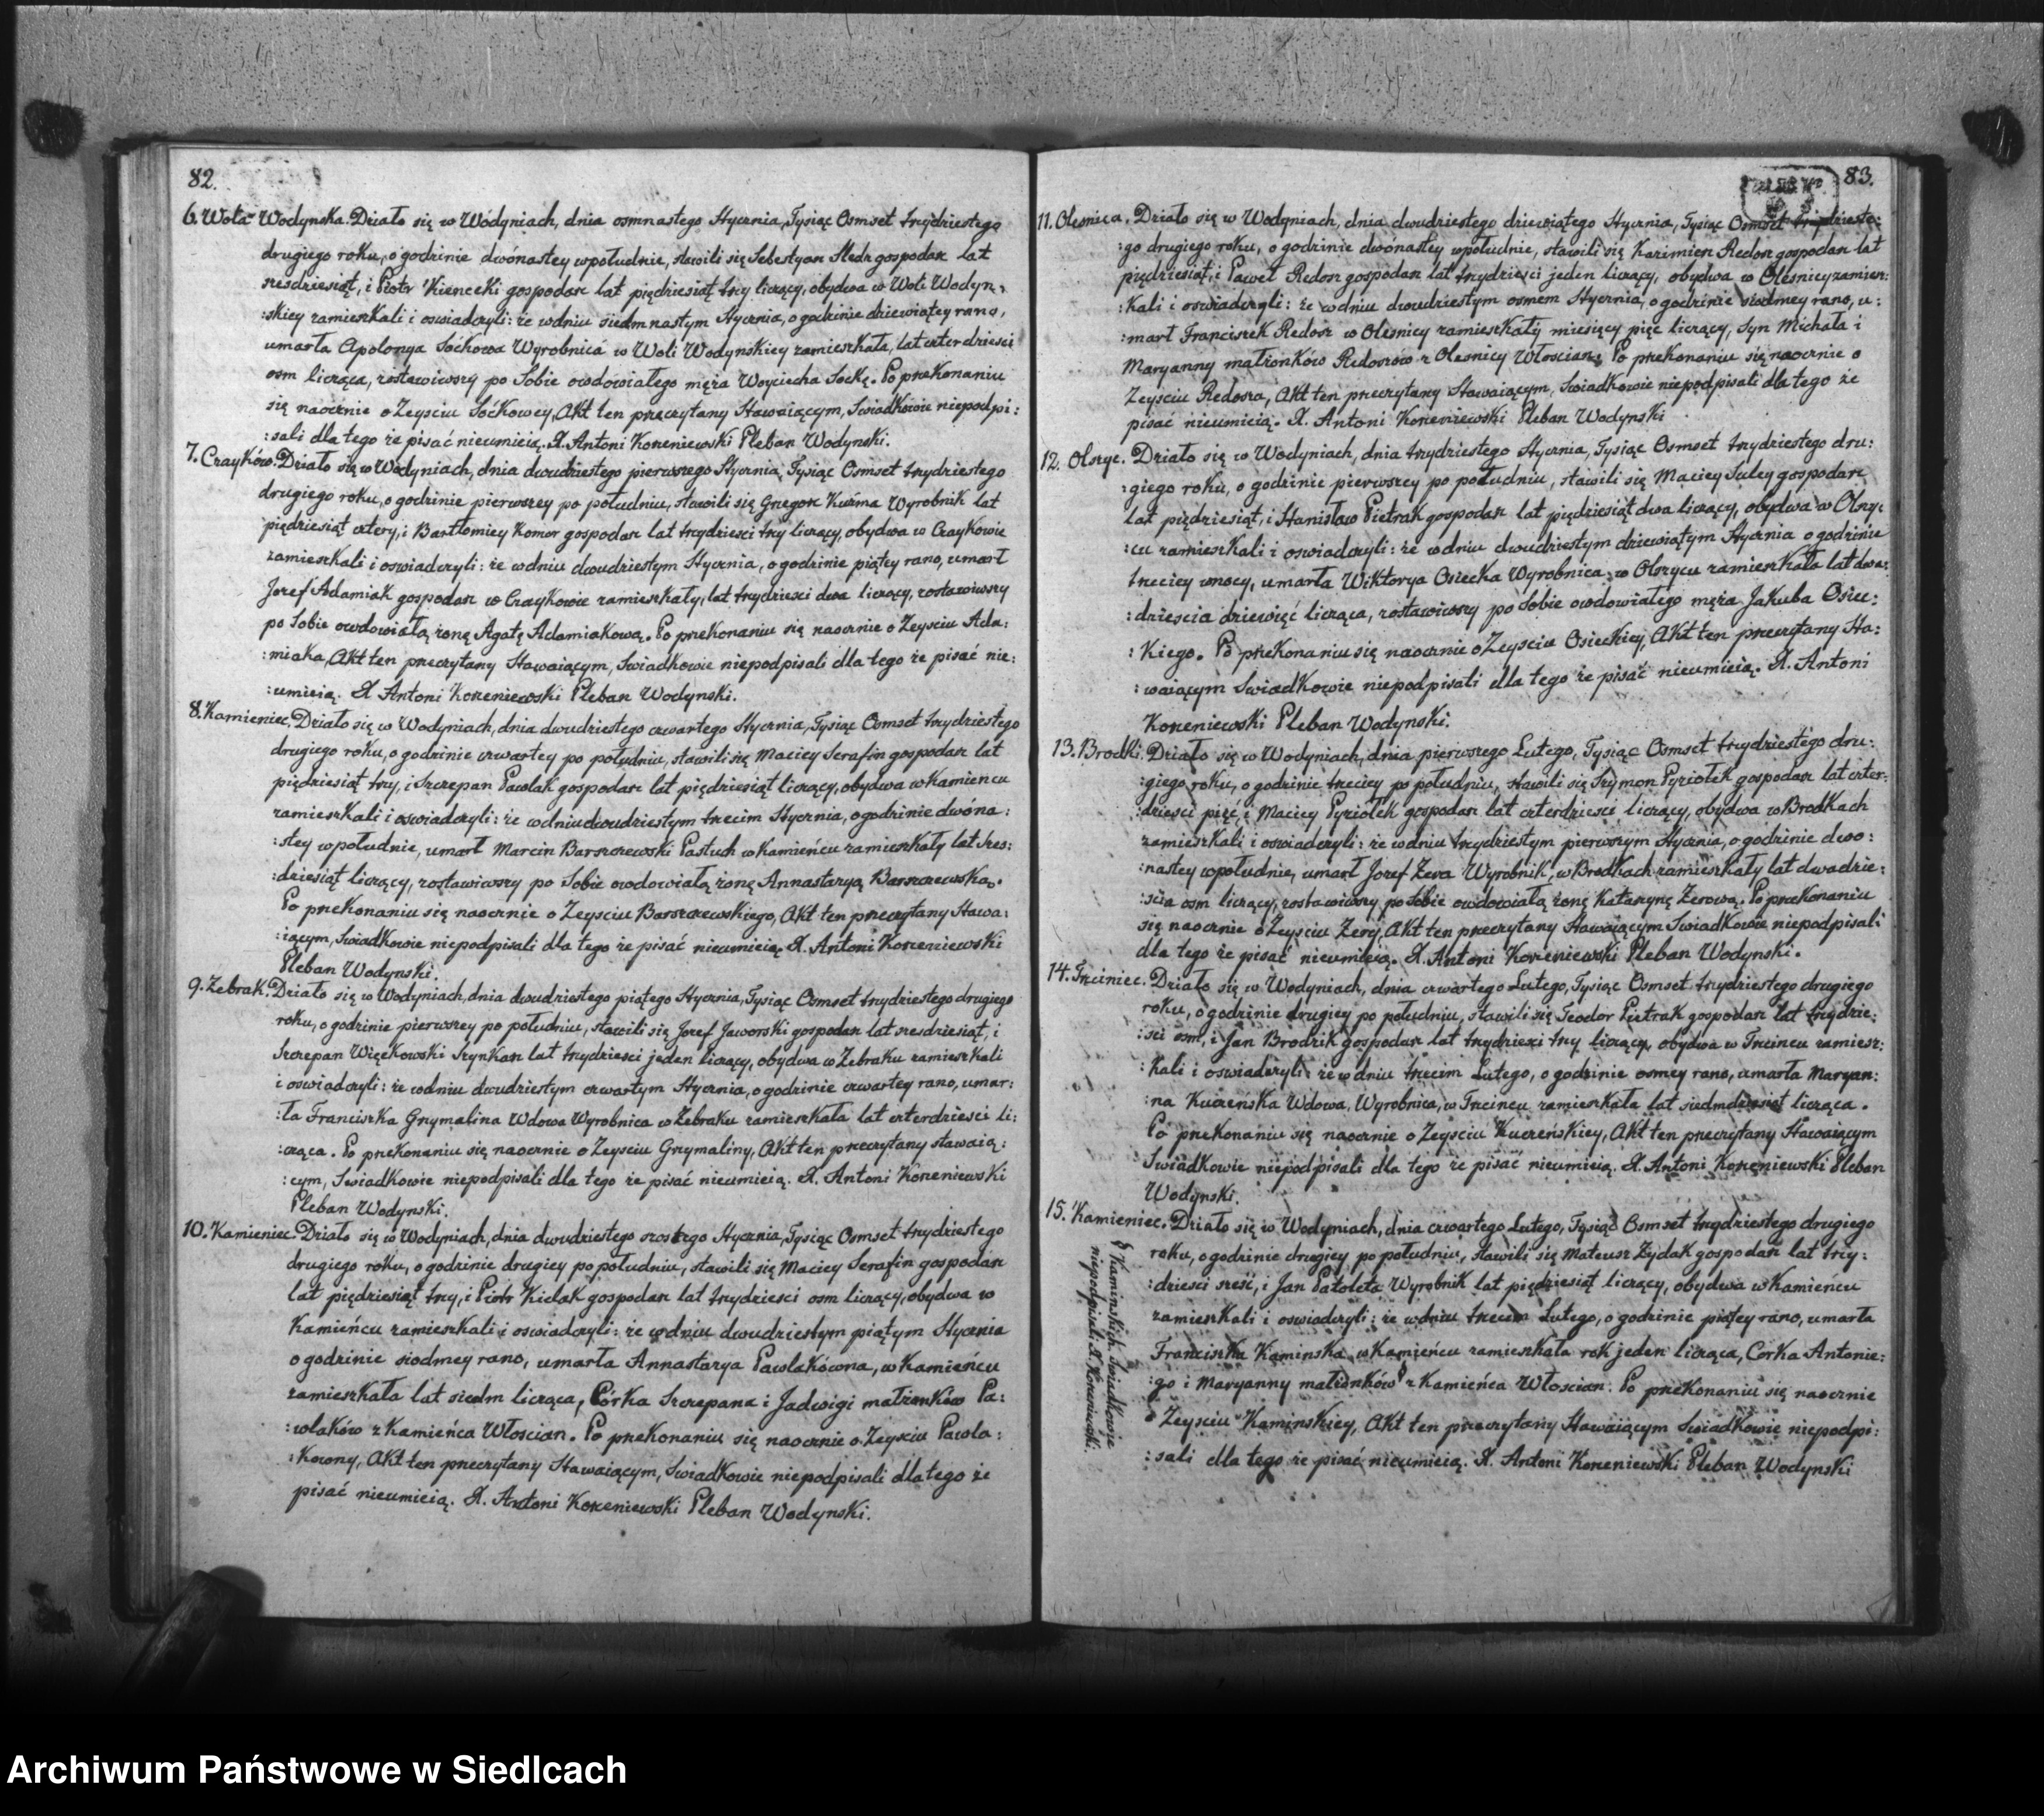 82.
6. Wola Wodynska. Działo się w Wodyniach, dnia osmnastego Stycznia, Tysiąc Osmset trzydziestego
drugiego roku, o godzinie dwónastey wpołudnie, stawili się Sebestyan Sledz gospodarz lat
szesdziesiąt, i Piotr gospodarz lat pięcdziesiąt trzy liczący, obydwa w Woli Wodyn:
:skiey zamieszkali i oswiadczyli: że wdniu siedmnastym Stycznia, o godzinie dziewiątey rano,
umarła Apolonya Soćkowa Wyrobnica w Woli Wodynskiey zamieszkała, lat czterdziesci
osm licząca, zostawiwszy po Sobie owdowiałego męża Woyciecha Soćkę. Po przekonaniu
się naocznie o Zeysciu Soćkowey, Akt ten przeczytany Stawaiącym, Swiadkowie niepodpi:
:sali dla tego że pisać nieumieią. X. Antoni Korzeniewski Pleban Wodynski.
7. Czayków. Działo się w Wodyniach, dnia dwudziestego pierwszego Stycznia, Tysiąc Osmset trzydziestego
drugiego roku, o godzinie pierwszey po południu, stawili się Grzegorz Kuźma Wyrobnik lat
pięcdziesiąt cztery, i Bartłomiey Komor gospodarz lat trzydziesci trzy liczący, obydwa w Czaykowie
zamieszkali i oswiadczyli: że wdniu dwudziestym Stycznia, o godzinie piątey rano, umarł
Jozef Adamiak gospodarz w Czaykowie zamieszkały, lat trzydziesci dwa liczący, zostawiwszy
po Sobie owdowiałą żonę Agatę Adamiakową. Po przekonaniu się naocznie o Zeysciu Ada:
:miaka, Akt ten przeczytany Stawaiącym, Swiadkowie niepodpisali dla tego że pisać nie:
:umieią. X Antoni Korzeniewski Pleban Wodynski.
8. Kamieniec. Działo się w Wodyniach, dnia dwudziestego czwartego Stycznia, Tysiąc Osmset trzydziestego
drugiego roku, o godzinie czwartey po południu, stawili się Maciey Serafin gospodarz lat
pięcdziesiąt trzy, i Szczepan Pawlak gospodarz lat pięcdziesiąt liczący, obydwa w Kamiencu
zamieszkali i oswiadczyli: że wdniu dwudziestym trzecim Stycznia, o godzinie dwóna:
:stey wpołudnie, umarł Marcin Barszczewski Pastuch w Kamieńcu zamieszkały lat Szes:
:dziesiąt liczący, zostawiwszy po Sobie owdowiałą żonę Annastazyą Barszczewską.
Po przekonaniu się naocznie o Zeysciu Barszczewskiego, Akt ten przeczytany Stawa:
:iącym, Swiadkowie niepodpisali dla tego że pisać nieumieią. X. Antoni Korzeniewski
Pleban Wodynski.
9. Żebrak. Działo się w Wodyniach, dnia dwudziestego piątego Stycznia, Tysiąc Osmset trzydziestego drugiego
roku, o godzinie pierwszey po południu, stawili się Jozef Jaworski gospodarz lat szesdziesiąt, i
Szczepan Więckowski Szynkarz lat trzydziesci jeden liczący, obydwa w Żebraku zamieszkali
i oswiadczyli: że wdniu dwudziestym czwartym Stycznia, o godzinie czwartey rano, umar:
:ła Franciszka Grzymalina Wdowa Wyrobnica w Żebraku zamieszkała lat czterdziesci li:
:cząca. Po przekonaniu się naocznie o Zeysciu Grzymaliny, Akt ten przeczytany stawaią:
:cym, Swiadkowie niepodpisali dla tego że pisać nieumieią. X. Antoni Korzeniewski
Pleban Wodynski.
10. Kamieniec. Działo się w Wodyniach, dnia dwudziestego szostego Stycznia, Tysiąc Osmset trzydziestego
drugiego roku, o godzinie drugiey po południu, stawili się Maciey Serafin gospodarz
lat pięcdziesiąt trzy, i Piotr Kielak gospodarz lat trzydziesci osm liczący, obydwa w
Kamieńcu zamieszkali i oswiadczyli: że wdniu dwudziestym piątym Stycznia
o godzinie siodmey rano, umarła Annastazya Pawlakówna, w Kamieńcu
zamieszkała lat siedm licząca, Córka Szczepana i Jadwigi małżonków Pa:
:wlaków z Kamieńca Włoscian. Po przekonaniu się naocznie o Zeysciu Pawla:
:kowny, Akt ten przeczytany Stawaiącym, Swiadkowie niepodpisali dla tego że
pisać nieumieią. X. Antoni Korzeniewski Pleban Wodynski.
83.
11. Olesnica. Działo się w Wodyniach, dnia dwudziestego dziewiątego Stycznia, Tysiąc Osmset trzydzieste:
:go drugiego roku, o godzinie dwónastey wpołudnie, stawili się Kazimierz Redosz gospodarz lat
pięcdziesiąt, i Paweł Redosz gospodarz lat trzydziesci jeden liczący, obydwa w Olesnicy zamiesz:
:kali i oswiadczyli: że wdniu dwudziestym osmem Stycznia, o godzinie siodmey rano, u:
:marł Franciszek Redosz w Olesnicy zamieszkały miesięcy pięc liczący, Syn Michała i
Maryanny małżonków Redoszow z Olesnicy Włoscian. Po przekonaniu się naocznie o
Zeysciu Redosza, Akt ten przeczytany Stawaiącym, Swiadkowie niepodpisali dla tego że
pisać nieumieią. X. Antoni Korzeniewski Pleban Wodynski
12. Olszyc. Działo się w Wodyniach, dnia trzydziestego Stycznia, Tysiąc Osmset trzydziestego dru:
:giego roku, o godzinie pierwszey po południu, stawili się Maciey Suley gospodarz
lat pięcdziesiąt, i Stanisław Pietrak gospodarz lat pięcdziesiąt dwa liczący, obydwa w Olszy:
:cu zamieszkali i oswiadczyli: że wdniu dwudziestym dziewiątym Stycznia o godzinie
trzeciey wnocy, umarła Wiktorya Osiecka Wyrobnica, w Olszycu zamieszkała lat dwa:
:dziescia dziewięć licząca, zostawiwszy po Sobie owdowiałego męża Jakuba Osiec:
:kiego. Po przekonaniu się naocznie o Zeysciu Osieckiey, Akt ten przeczytany Sta:
:waiącym Swiadkowie niepodpisali dla tego że pisać nieumieią. X. Antoni
Korzeniewski Pleban Wodynski.
13. Brodki. Działo się w Wodyniach, dnia pierwszego Lutego, Tysiąc Osmset trzydziestego dru:
:giego roku, o godzinie trzeciey po południu, stawili się Szymon Pyziołek gospodarz lat czter:
:dziesci pięć, i Maciey Pyziołek gospodarz lat czterdziesci liczący, obydwa w Brodkach
zamieszkali i oswiadczyli: że wdniu trzydziestym pierwszym Stycznia, o godzinie dwo:
:nastey wpołudnie, umarł Jozef Zera Wyrobnik, w Brodkach zamieszkały lat dwadzie:
:scia osm liczący, zostawiwszy po Sobie owdowiałą żonę Katarzynę Zerową. Po przekonaniu
się naocznie o Zeysciu Zery, Akt ten przeczytany Stawaiącym Swiadkowie niepodpisali
dla tego że pisać nieumieią. X. Antoni Korzeniewski Pleban Wodynski.
14. Trzciniec. Działo się w Wodyniach, dnia czwartego Lutego, Tysiąc Osmset trzydziestego drugiego
roku, o godzinie drugiey po południu, stawili się Teodor Pietrak gospodarz lat trzydzie:
:sci osm, i Jan Brodzik gospodarz lat trzydziesci trzy liczący, obydwa w Trzcincu zamiesz:
:kali i oswiadczyli: że wdniu trzecim Lutego, o godzinie osmey rano, umarła Maryan:
:na Kuczeńska Wdowa, Wyrobnica, w Trzcincu zamieszkała lat siedmdziesiąt licząca.
Po przekonaniu się naocznie o Zeysciu Kuczeńskiey, Akt ten przeczytany Stawaiącym
Swiadkowie niepodpisali dla tego że pisać nieumieią. X. Antoni Korzeniewski Pleban
Wodynski.
15. Kamieniec. Działo się w Wodyniach, dnia czwartego Lutego, Tysiąc Osmset trzydziestego drugiego
roku, o godzinie drugiey po południu, stawili się Mateusz Zydak gospodarz lat trzy:
:dziesci szesć, i Jan Patoleta Wyrobnik lat pięcdziesiąt liczący, obydwa w Kamieńcu
zamieszkali i oswiadczyli: że wdniu trzecim Lutego, o godzinie piątey rano, umarła
Franciszka Kaminska, w Kamieńcu zamieszkała rok jeden licząca, Corka Antonie:
:go i Maryanny małżonków § z Kamieńca Włoscian. Po przekonaniu się naocznie
o Zeysciu Kaminskiey, Akt ten przeczytany Stawaiącym Swiadkowie niepodpi:
:sali dla tego że pisać nieumieią. X. Antoni Korzeniewski Pleban Wodynski
§ Kaminskich. Swiadkowie
niepodpisali X. Korzeniewski.
Archiwum Państwowe w Siedlcach